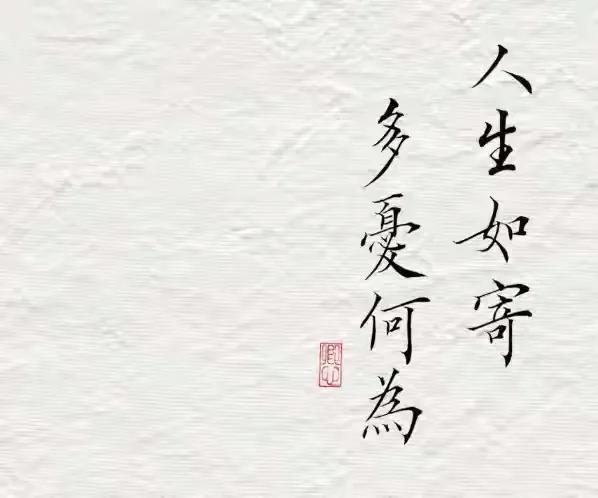 人生如寄
多憂何為